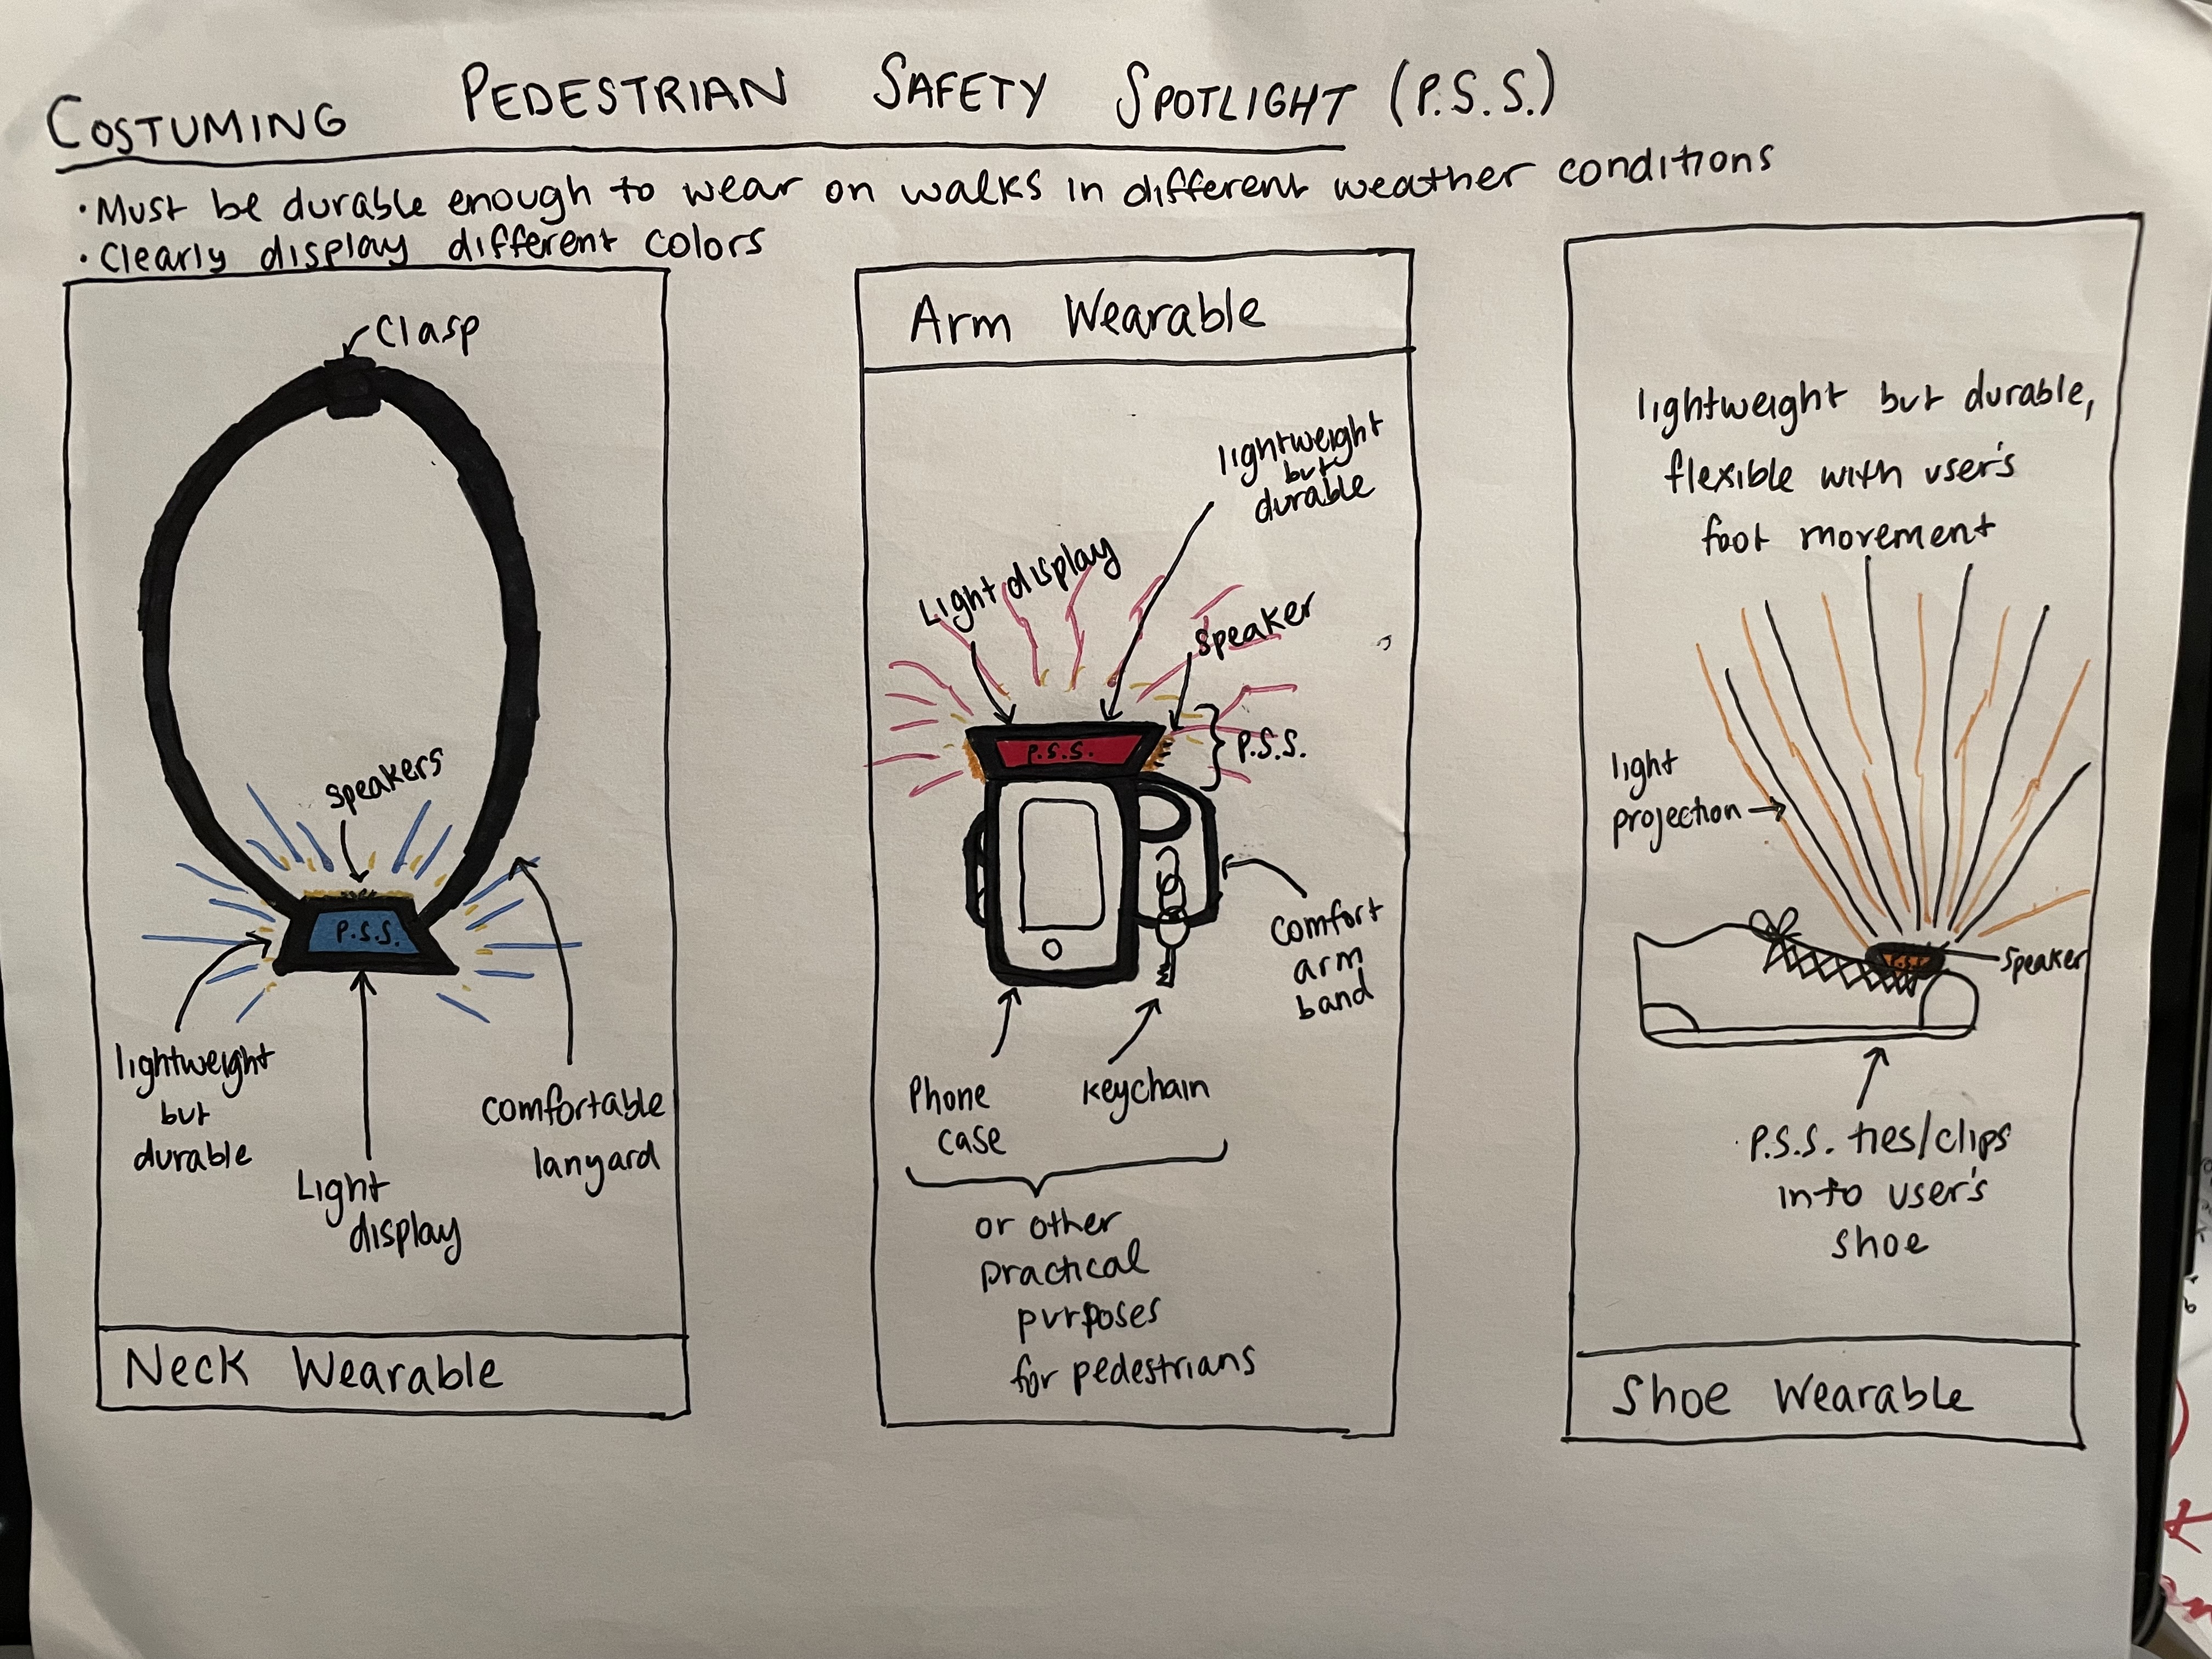 COSTUMING PEDESTRIAN SAFETY SPOTLIGHT (P.S.S.)
• Must be durable enough to wear on walks in different weather conditions
• Clearly display different colors
Clasp
speakers
P.S.S.
lightweight
but
durable
Light
display
comfortable
lanyard
Neck Wearable
Arm Wearable
lightweight
but
durable
Light display
speaker
P.S.S.
P.S.S.
comfort
arm
band
Phone
case
keychain
or other
practical
purposes
for pedestrians
lightweight but durable,
flexible with user's
foot movement
light
projection
P.S.S.
speaker
P.S.S. ties/clips
into user's
shoe
Shoe Wearable